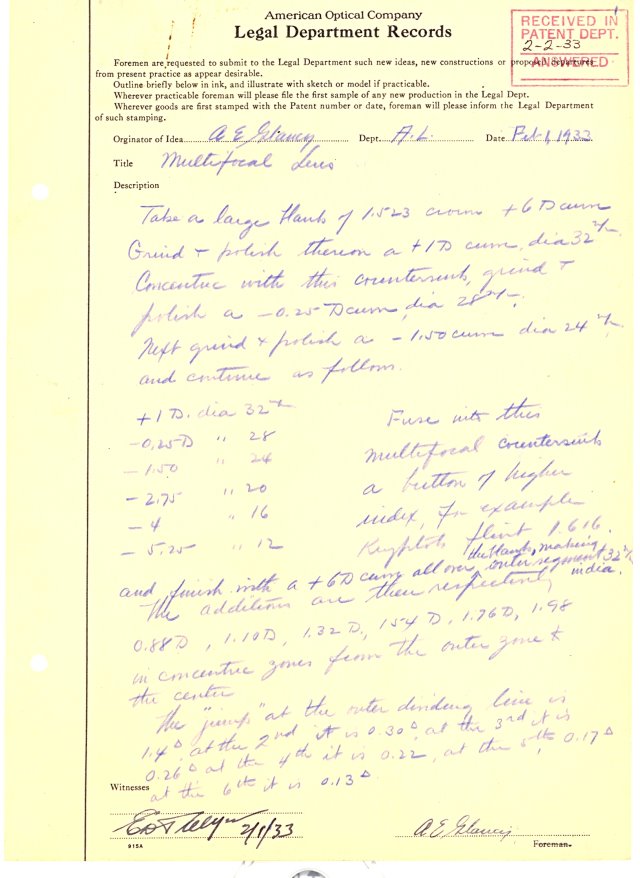 American Optical Company
Legal Department Records
RECEIVED IN
PATENT DEPT.
2-2-33
ANSWERED
Foremen are requested to submit to the Legal Department such new ideas, new constructions or proposed departures
from present practice as appear desirable.
Outline briefly below in ink, and illustrate with sketch or model if practicable.
Wherever practicable foreman will please file the first sample of any new production in the Legal Dept.
Wherever goods are first stamped with the Patent number or date, foreman will please inform the Legal Department
of such stamping.
Orginator of Idea A E Glancy Dept. A.L. Date Feb 1, 1933
Title Multifocal Lens
Description
Take a large blank of 1.523 crown +6 D curve
Grind + polish thereon a +1D curve, dia 32 m/m.
Concentric with this countersink, grind +
polish a -0.25 D curve, dia 28 m/m.
Next grind + polish a -1.50 curve dia 24 m/m.
and continue as follows.
+1 D. dia 32 m/m
-0.25 D " 28
-1.50 " 24
-2.75 " 20
-4 " 16
-5.25 " 12
Fuse into this
multifocal countersink
a button of higher
index, for example
Kryptok flint 1.616.
and finish with a +6D curve all over the blank, making outer segment 32 m/m in dia.
The additions are then respectively
0.88 D, 1.10 D, 1.32 D, 1.54 D, 1.76 D, 1.98
in concentric zones from the outer zone to
the center
The "jump" at the outer dividing line is
1.4△ at the 2nd it is 0.30△, at the 3rd it is
0.26△ at the 4th it is 0.22, at the 5th, 0.17△
at the 6th it is 0.13△
Witnesses
2/1/33
A E Glancy
Foreman.
915A